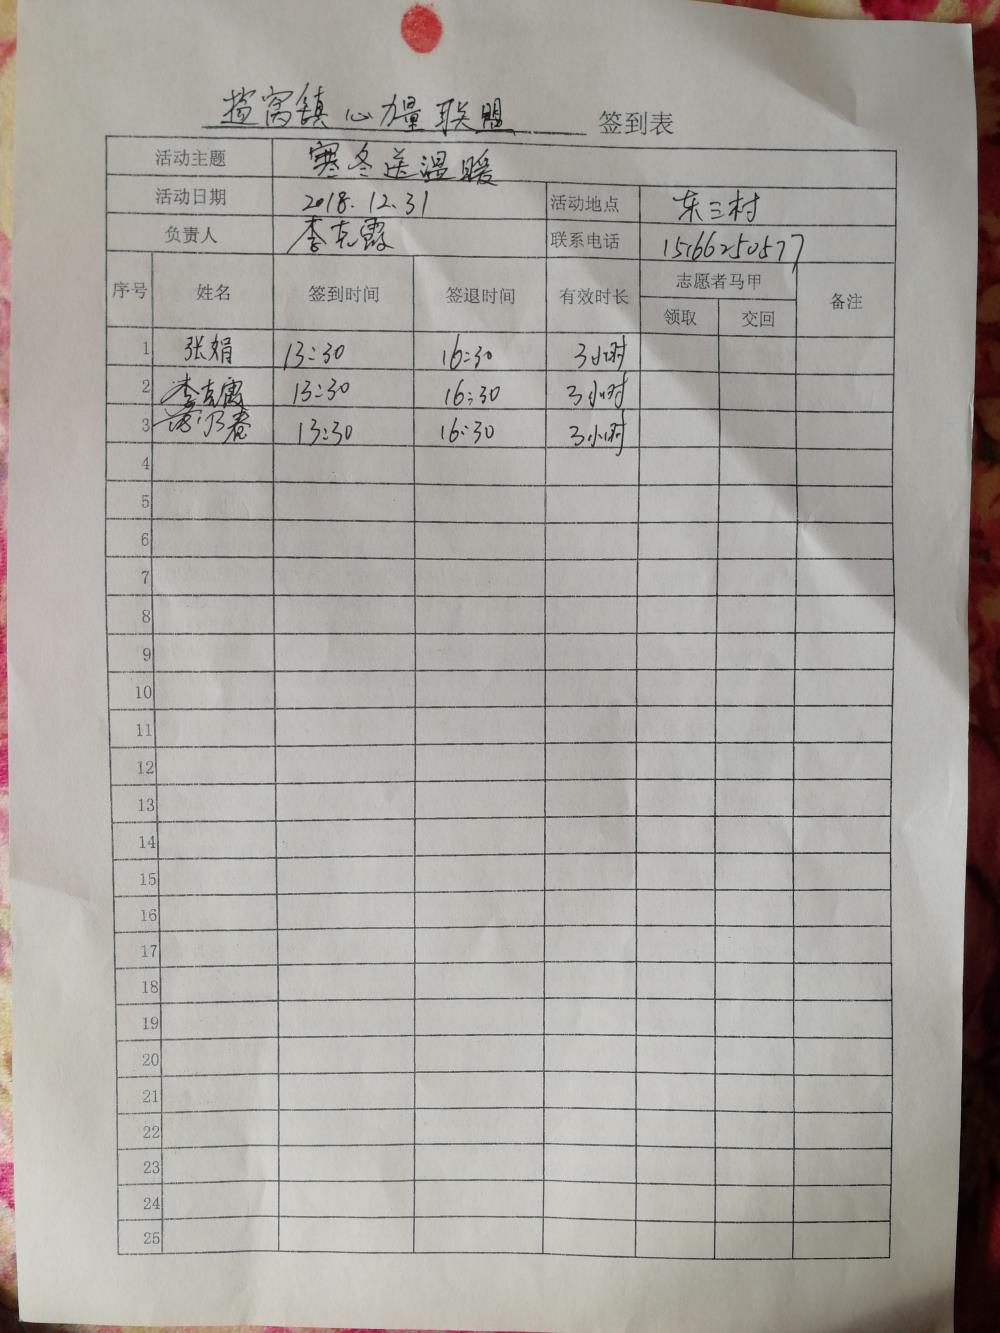 心力量联盟 签到表
活动主题 寒冬送温暖
活动日期 2018.12.31 活动地点 东三村
负责人 李克霞 联系电话 15166250577
序号 姓名 签到时间 签退时间 有效时长 志愿者马甲 备注
领取 交回
1 张娟 13:30 16:30 3小时
2 李克霞 13:30 16:30 3小时
3 13:30 16:30 3小时
4
5
6
7
8
9
10
11
12
13
14
15
16
17
18
19
20
21
22
23
24
25